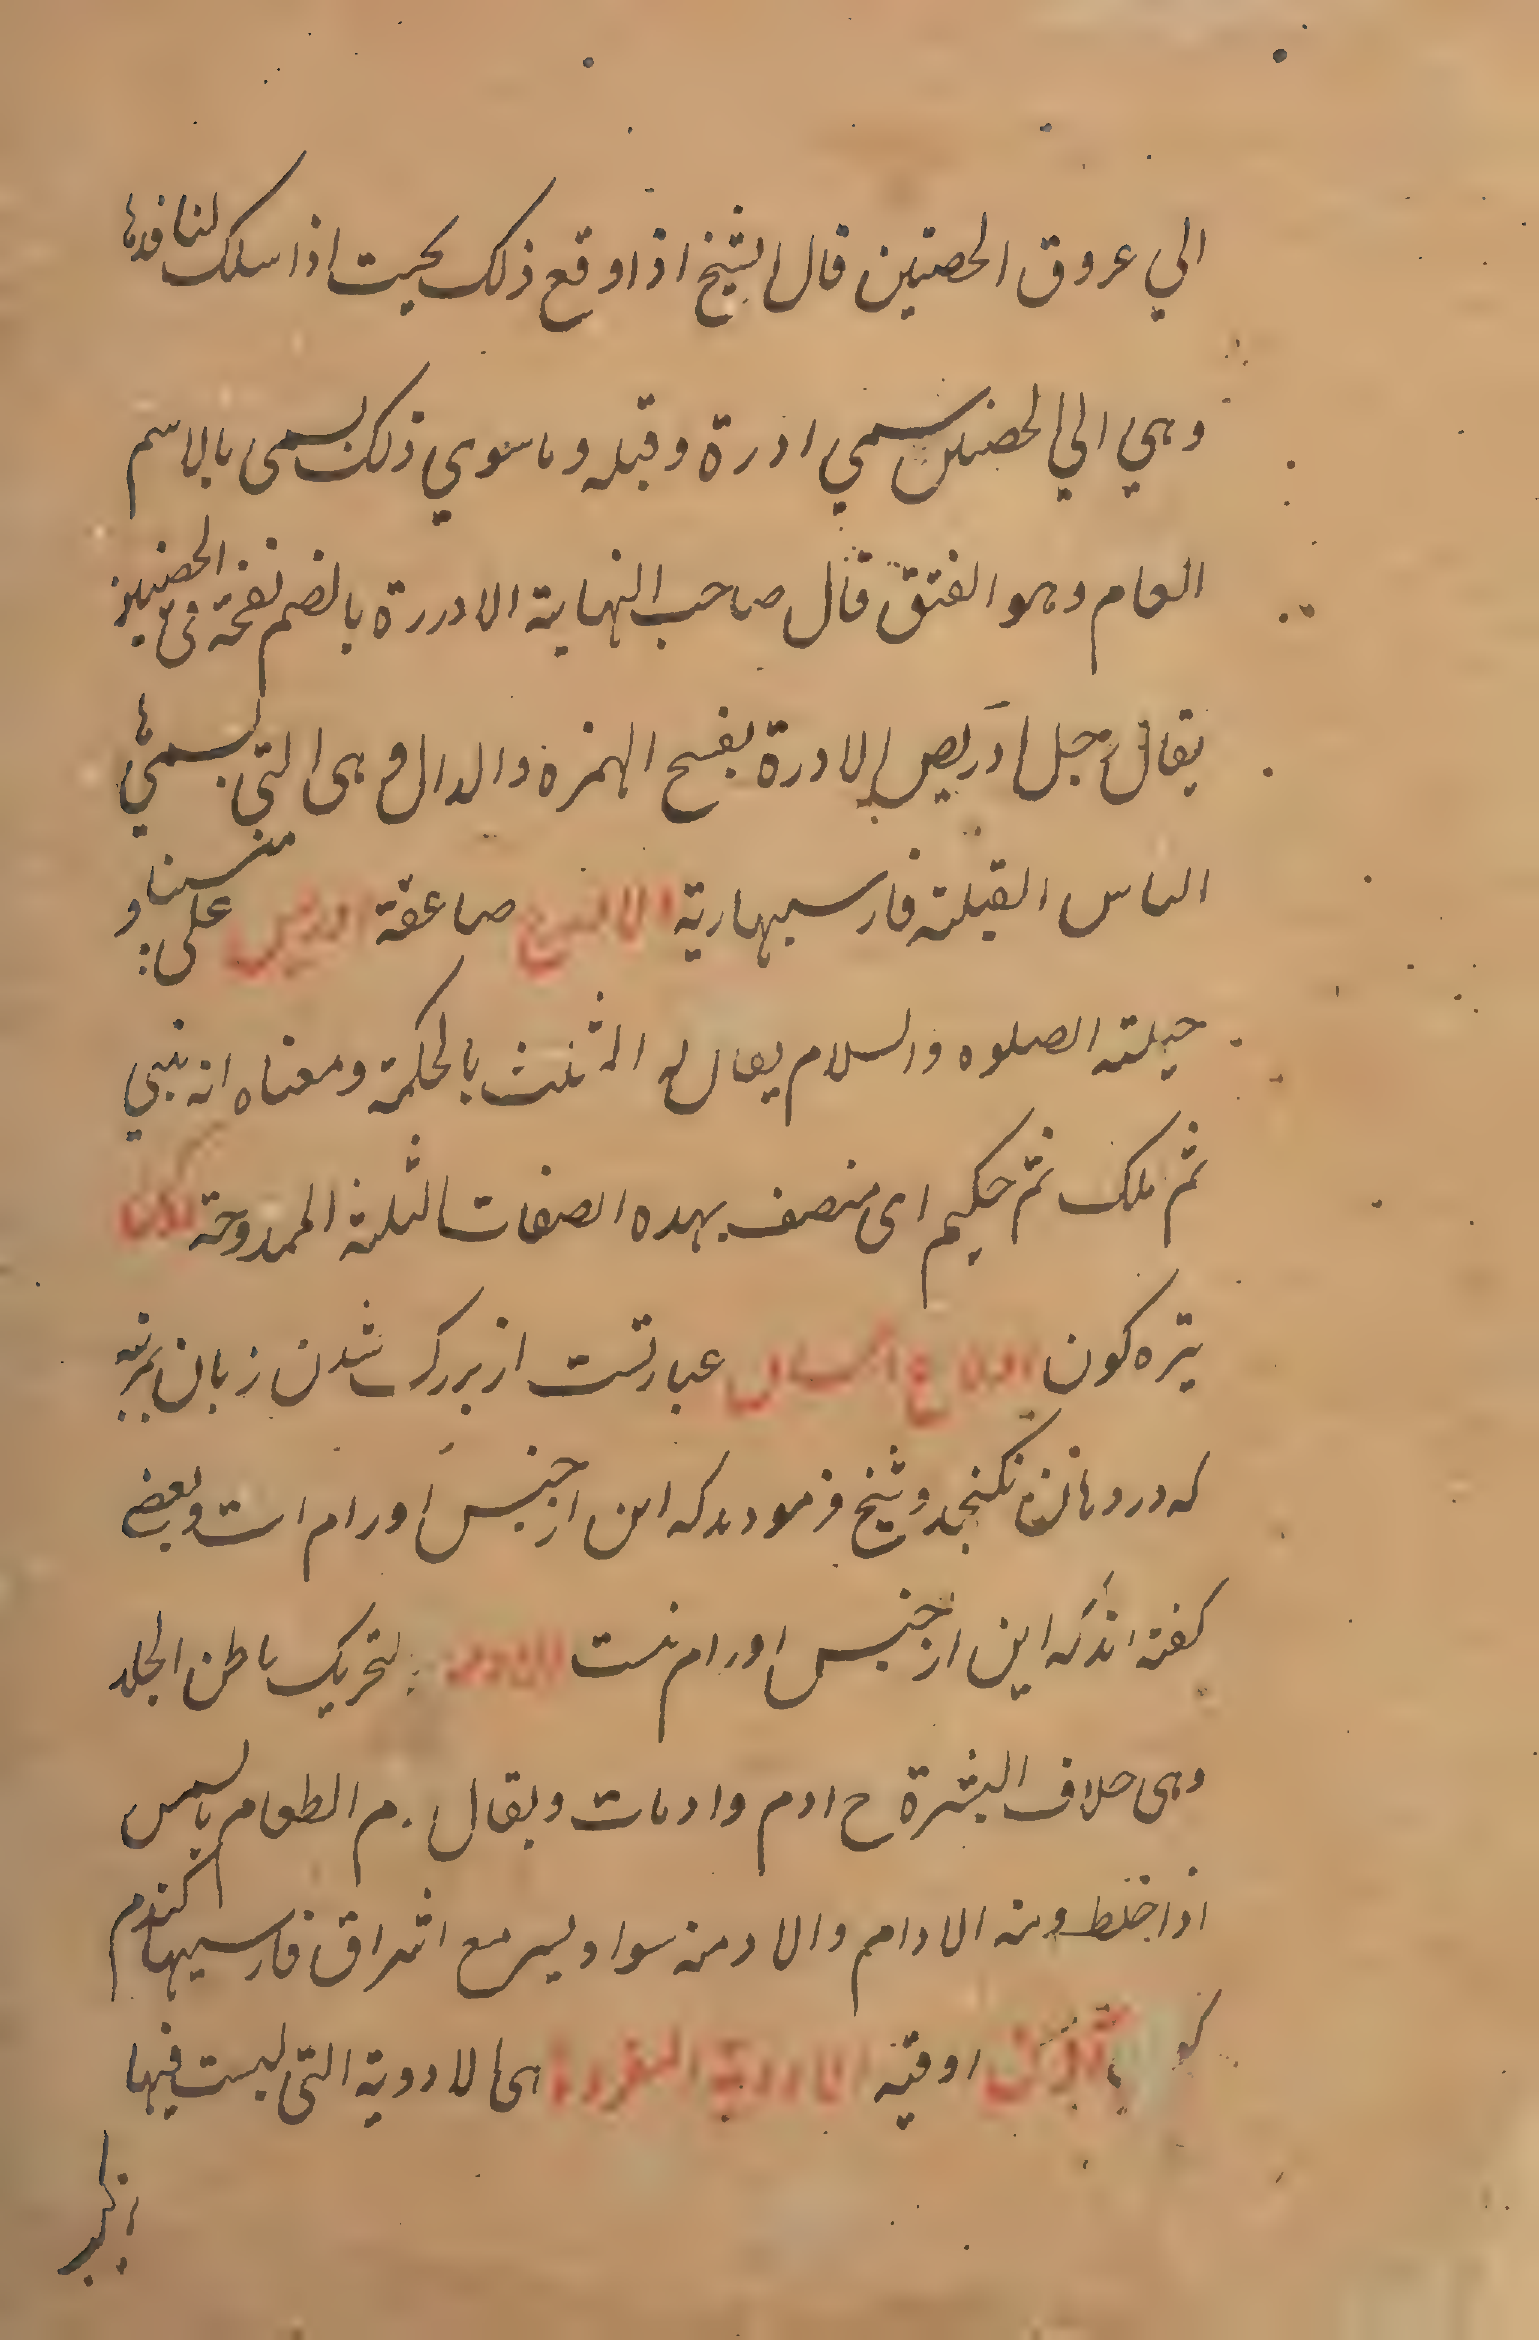 الي عروق الحصيتين قال الشيخ اذا وقع ذلك بحيت اذا سلك لنافدها
وهي الي الحصيتين سمي ادرة وقيله وماسوي ذلك يسمى بالاسم
العام وهو الفتق قال صاحب النهاية الادررة بالضم نفخة فى الحصيتين
يقال رجل ادر بين الادرة بفتح الهمزه والدال وهى التى تسميها
الناس القيلته فارسيها رية صاعقة ادريس على نبينا و
عليته الصلوه والسلام يقال له المثلث بالحكمة ومعناه انه نبيي
ثم ملك ثم حكيم اى متصف بهده الصفات الثلثة الممدوحة
تيره كون ادلاع اللسان عبارتست از بزرك شدن زبان بمرتبه
كه در دهان نكنجد و شيخ فرمودند كه اين از جنس اورام است و بعضے
كفته اند كه اين از جنس اورام نست الادمه بتحريك باطن الجلد
وهى خلاف البشرة ح ادم وادمات ويقال ادم الطعام
اذا خلط ومنه الادام والادمنه سواد يسير مع اشراق فارسيها كندم
كو اوقيه الادوية المفردة هى الادوية التى ليست فيها